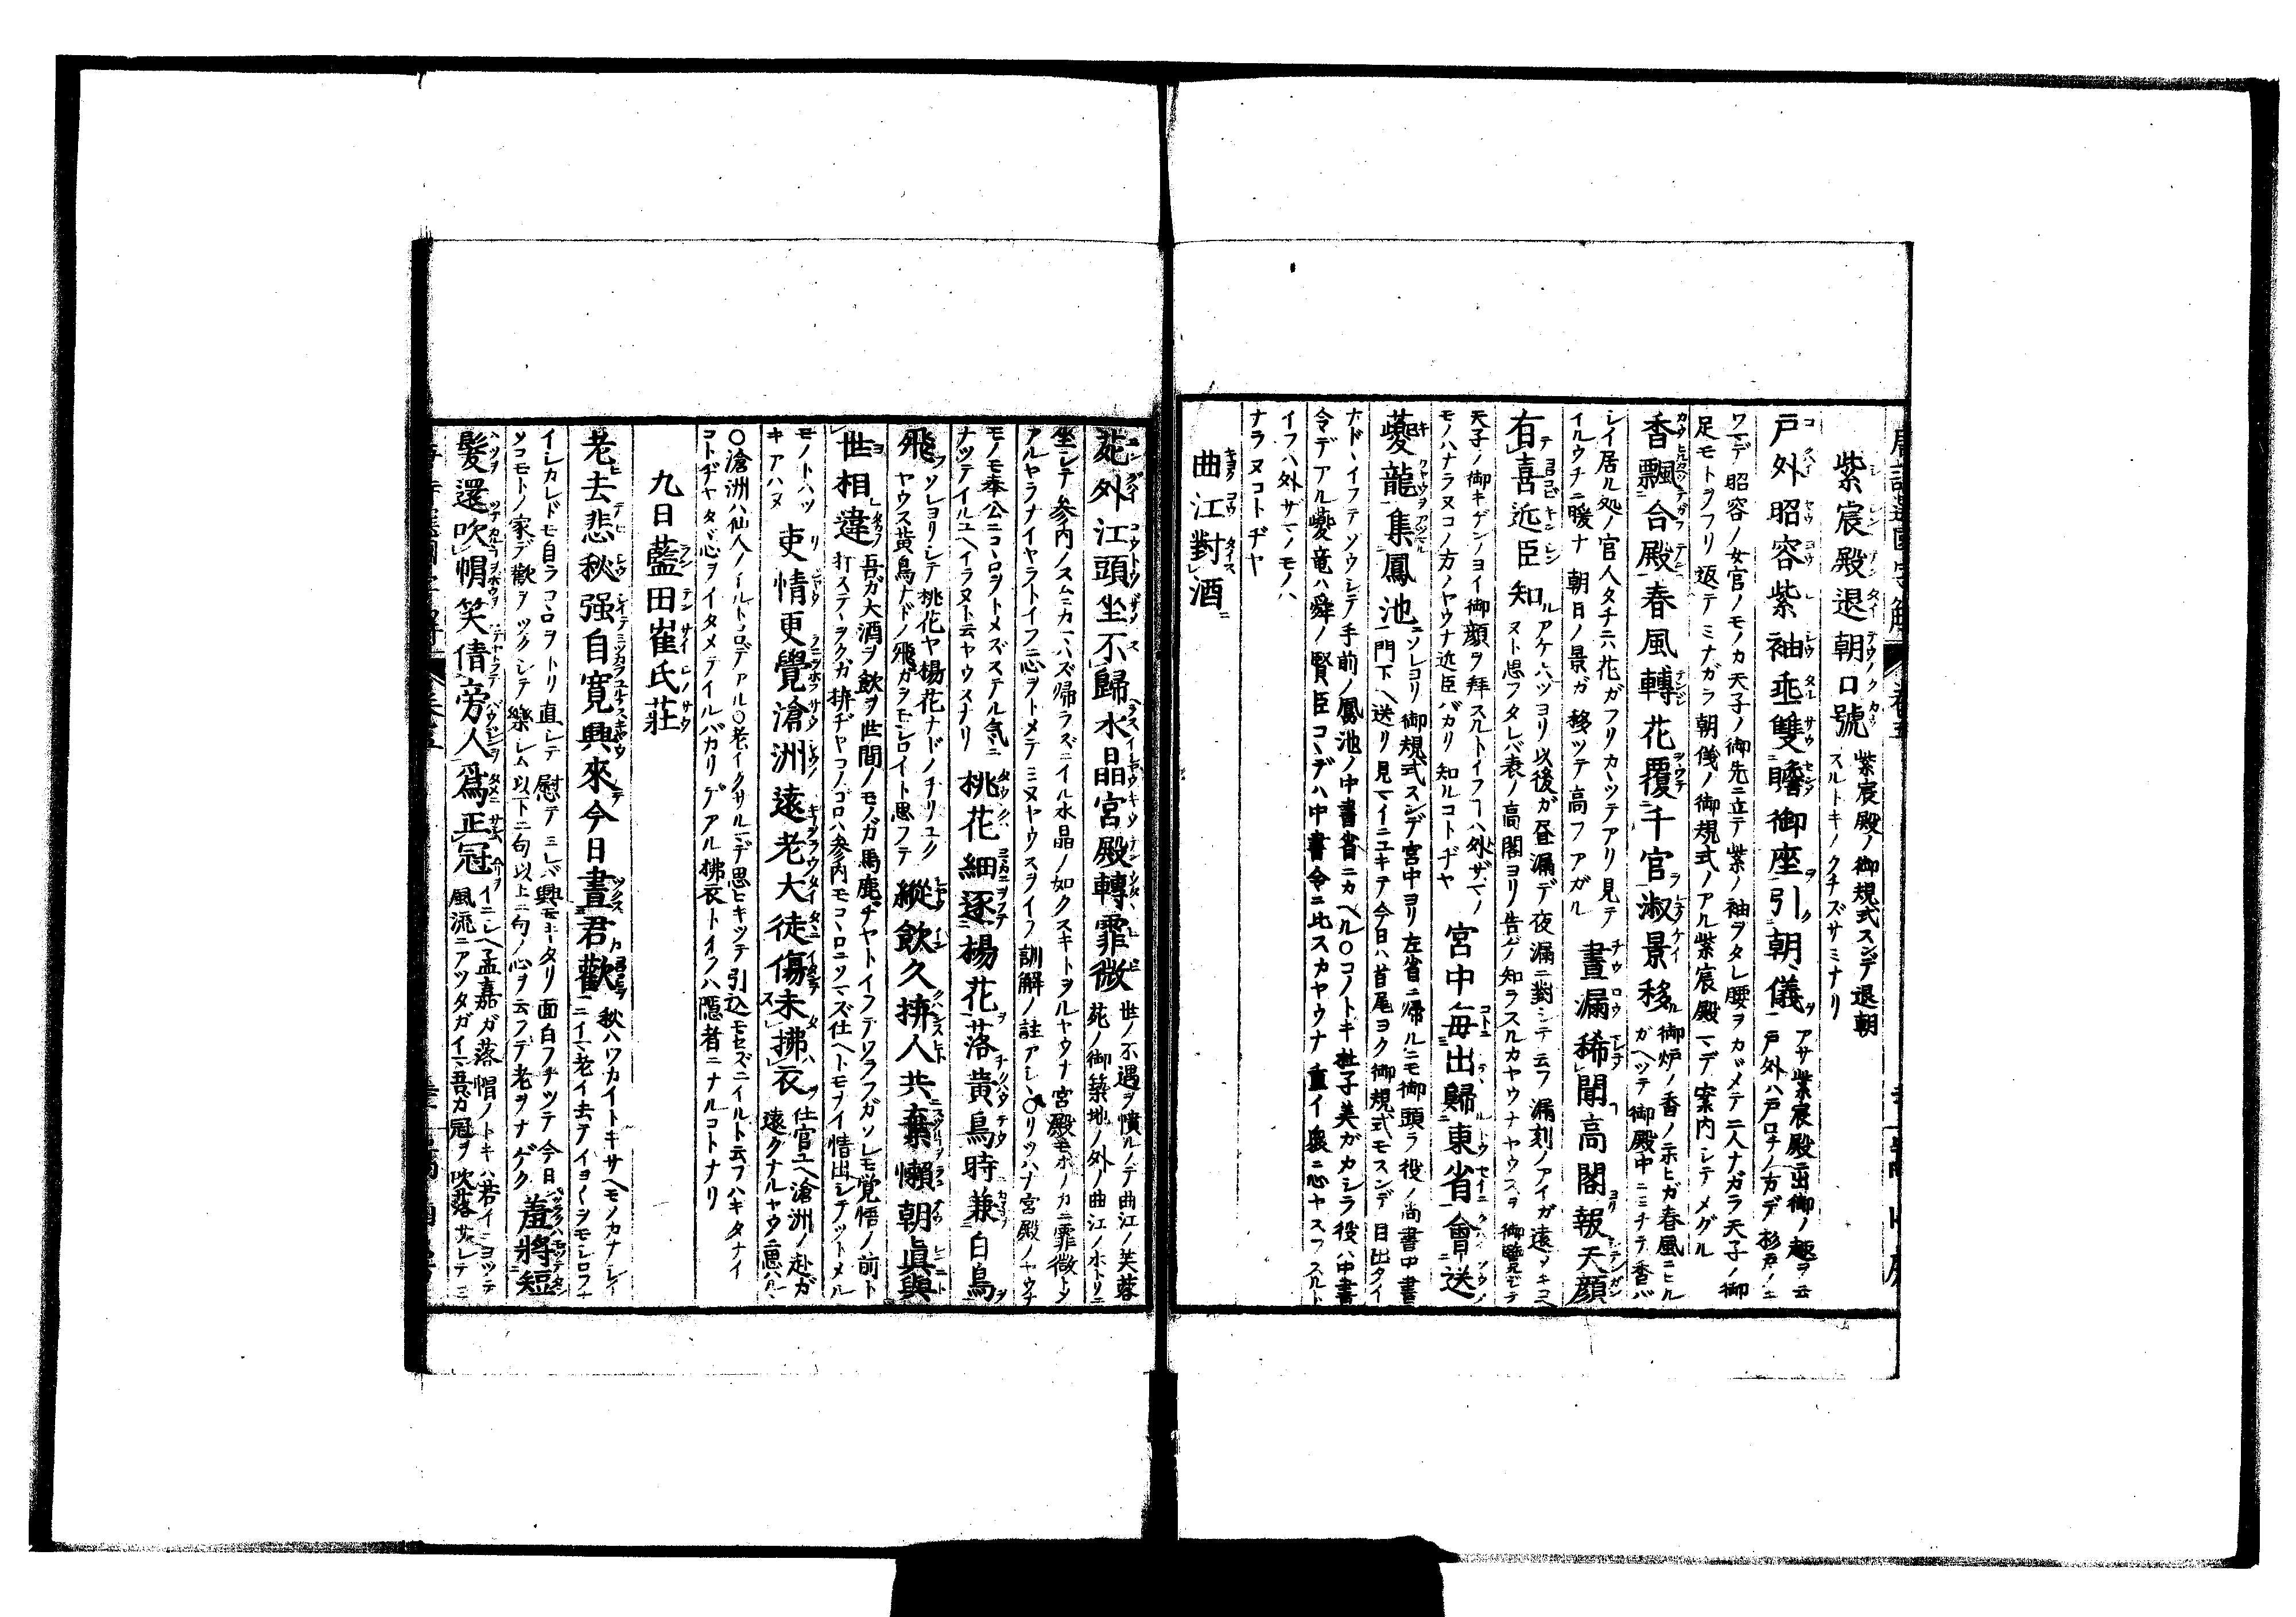 紫宸殿退朝口號 紫宸殿ノ御規式スンデ退朝
スルトキノクチズサミナリ
戸外昭容紫袖垂雙瞻御座引朝儀 アサ紫宸殿ニ出御ノ趣ヲ云
戸外ハ戸口チノ方デ杉戸ノ
ワマデ昭容ノ女官ノモノカ天子ノ御先ニ立テ紫ノ袖ヲタレ腰ヲカヾメテ二人ナガラ天子ノ御
足モトヲフリ返テミナガラ朝儀ノ御規式ノアル紫宸殿マデ案内シテメグル
香飄合殿春風轉花覆千官淑景移 御炉ノ香ノ匂ヒガ春風ニヒル
ガヘツテ御殿中ニミチテ香バ
シイ居ル処ノ官人タチニハ花ガフリカヽツテアリ見テ
イルウチニ暖ナ朝日ノ景ガ移ツテ高フアガル 晝漏稀聞高閣報天顔
有喜近臣知 アケ六ツヨリ以後ガ昼漏デ夜漏ニ對シテ云フ漏刻ノアイガ遠フキコヘ
ヌト思フタレバ表ノ高閣ヨリ告ゲ知ラスルカヤウナヤウスヲ御覽ジテ
天子ノ御キゲンノヨイ御顔ヲ拜スルトイフヿハ外ザマノ
モノハナラヌコノ方ノヤウナ近臣バカリ知ルコトヂヤ 宮中毎出歸東省會送
夔龍集鳳池 ソレヨリ御規式スンデ宮中ヨリ左省ニ帰ルニモ御頭ラ役ノ尚書中書
門下ヘ送リ見マイニユキテ今日ハ首尾ヨク御規式モスンデ目出タイ
ナドヽイフテソウシテ手前ノ鳳池ノ中書省ニカヘル○コノトキ杜子美ガカシラ役ハ中書
令デアル夔竜ハ舜ノ賢臣コヽデハ中書令ニ比スカヤウナ重イ衆ニ心ヤスフスルト
イフハ外ザマノモノハ
ナラヌコトヂヤ
曲江對酒
苑外江頭坐不歸水晶宮殿轉霏微 世ノ不遇ヲ憤ルノデ曲江ノ芙蓉
苑ノ御築地ノ外ノ曲江ノホトリニ
坐シテ参内ノスムニカマハズ帰ラズニイル水晶ノ如クスキトヲルヤウナ宮殿モホノカニ霏微トシ
アルヤラナイヤラトイフニ心ヲトメテミヌヤウスヲイフ訓解ノ註アシヽ○リツハナ宮殿ノヤウナ
モノモ奉公ニコヽロヲトメズステル気ニ
ナツテイルユヘイラヌト云ヤウスナリ 桃花細逐楊花落黄鳥時兼白鳥
飛 ソレヨリシテ桃花ヤ楊花ナドノチリユク
ヤウス黄鳥ナドノ飛ガヲモシロイト思フテ 縱飲久拚人共棄懶朝眞與
世相違 吾ガ大酒ヲ飲ヲ世間ノモノガ馬鹿ヂヤトイフテワラフガソレモ覚悟ノ前ト
打ステヽヲクガ拚ヂヤコノゴロハ参内モコヽロニソマズ仕ヘトモヲイ情出シテツトメル
モノトハツ
キアハヌ 吏情更覺滄洲遠老大徒傷未拂衣 仕官ユヘ滄洲ノ赴ガ
遠クナルヤウニ思ハルヽ
○滄洲ハ仙人ノイルトコロデアル○老イクサルマデ思ヒキツテ引込モセズニイルト云フハキタナイ
コトヂヤタヾ心ヲイタメテイルバカリデアル拂衣トイフハ隠者ニナルコトナリ
九日藍田崔氏莊
老去悲秋强自寛興來今日盡君歡 秋ハワカイトキサヘモノカナシイ
ニイマ老イ去テイヨ〱ヲモシロフナ
イシカレドモ自ラコヽロヲトリ直シテ慰テミレバ興モキタリ面白フナツテ今日
ソコモトノ家デ歡ヲツクシテ樂シム以下二句以上二句ノ心ヲ云フデ老ヲナゲク 羞將短
髪還吹帽笑倩旁人爲正冠 イニシヘ孟嘉ガ落帽ノトキハ若イニヨツテ
風流ニアツタガイマ吾カ冠ヲ吹落サレテミ